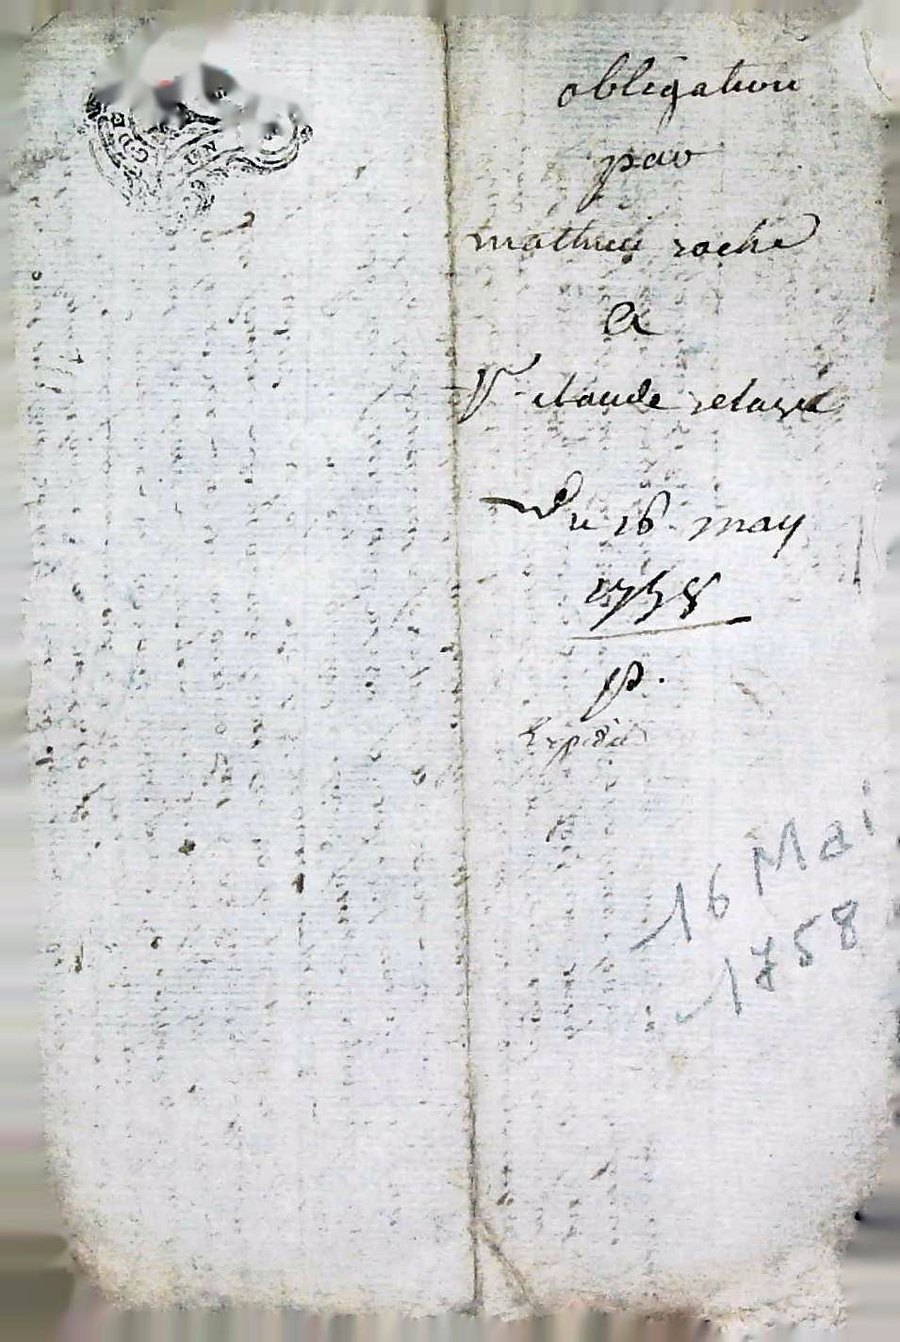 obligation
par
mathieu roche
a
Sr claude
Du 16 may
1758
p.
Expedié
16 Mai
1758